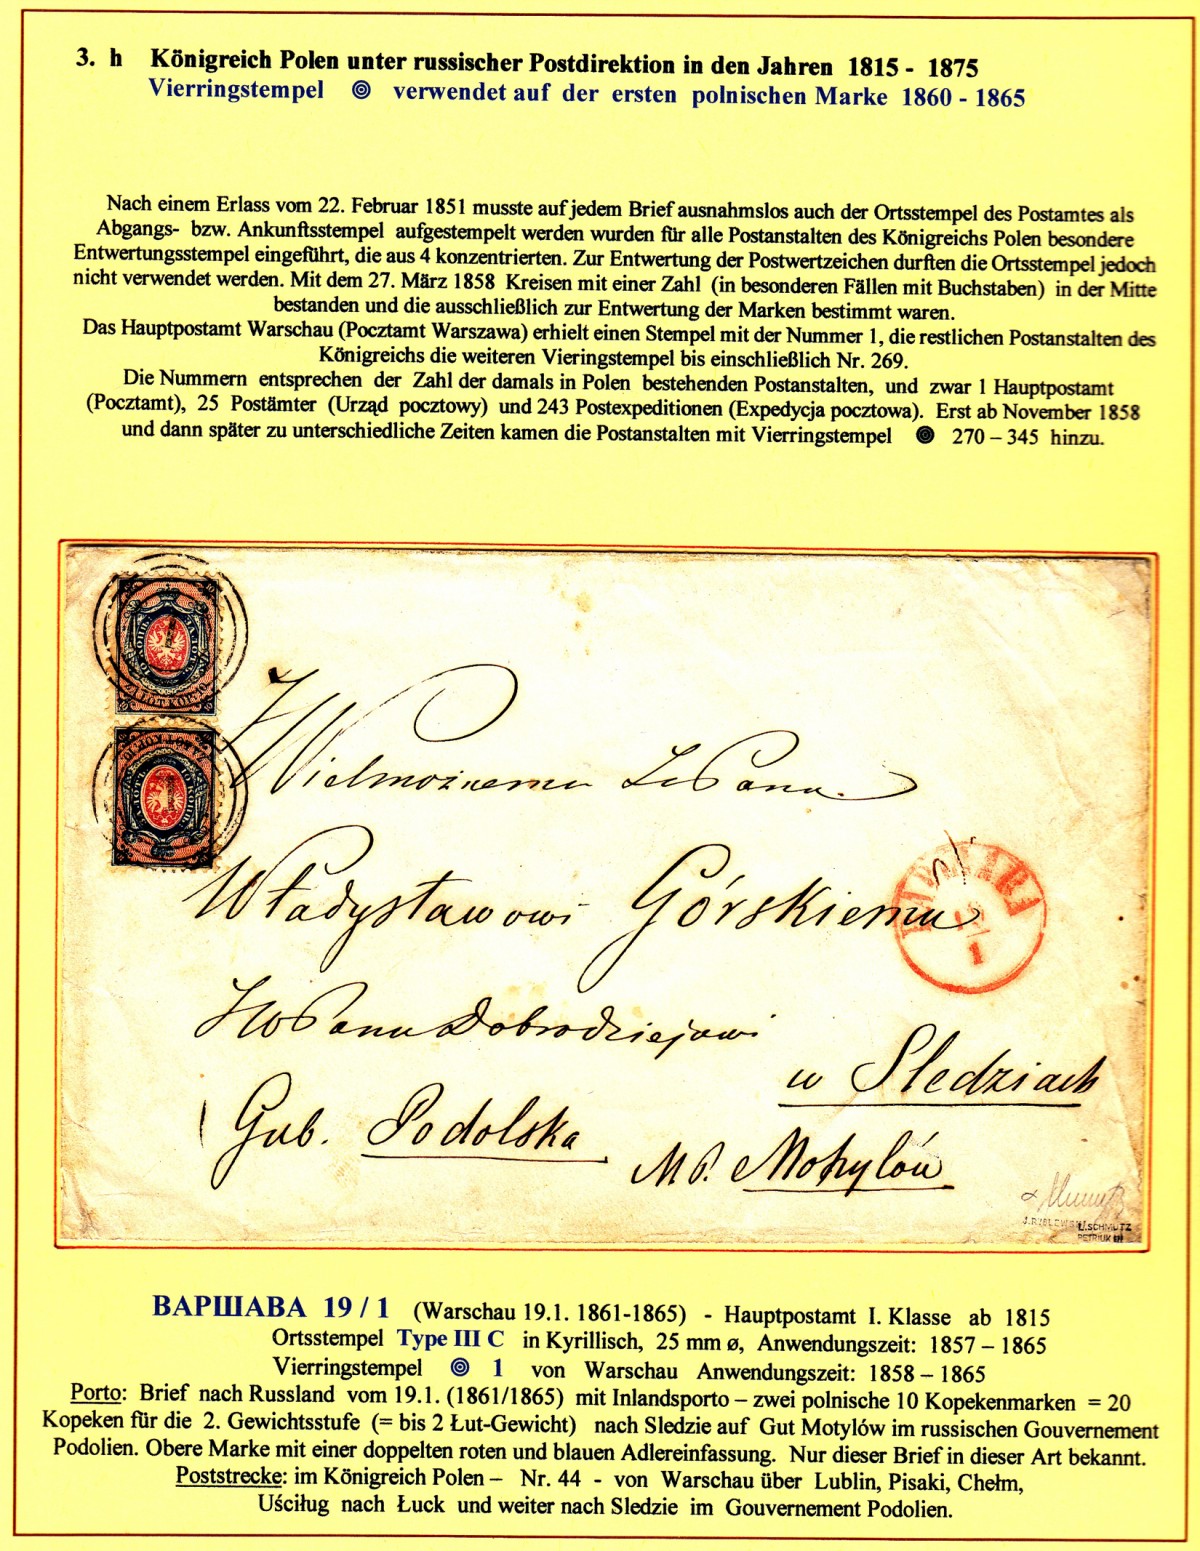 3. h Königreich Polen unter russischer Postdirektion in den Jahren 1815 - 1875
Vierringstempel verwendet auf der ersten polnischen Marke 1860 - 1865
Nach einem Erlass vom 22. Februar 1851 musste auf jedem Brief ausnahmslos auch der Ortsstempel des Postamtes als
Abgangs- bzw. Ankunftsstempel aufgestempelt werden wurden für alle Postanstalten des Königreichs Polen besondere
Entwertungsstempel eingeführt, die aus 4 konzentrierten. Zur Entwertung der Postwertzeichen durften die Ortsstempel jedoch
nicht verwendet werden. Mit dem 27. März 1858 Kreisen mit einer Zahl (in besonderen Fällen mit Buchstaben) in der Mitte
bestanden und die ausschließlich zur Entwertung der Marken bestimmt waren.
Das Hauptpostamt Warschau (Pocztamt Warszawa) erhielt einen Stempel mit der Nummer 1, die restlichen Postanstalten des
Königreichs die weiteren Vieringstempel bis einschließlich Nr. 269.
Die Nummern entsprechen der Zahl der damals in Polen bestehenden Postanstalten, und zwar 1 Hauptpostamt
(Pocztamt), 25 Postämter (Urząd pocztowy) und 243 Postexpeditionen (Expedycja pocztowa). Erst ab November 1858
und dann später zu unterschiedliche Zeiten kamen die Postanstalten mit Vierringstempel 270 – 345 hinzu.
1
1
Wielmożnemu
Władysławowi Górskiemu
Dobrodziejowi
w Sledziach
Gub. Podolska
Mohylów
ВАРШАВА
19
1
U.SCHMUTZ
ВАРШАВА 19 / 1 (Warschau 19.1. 1861-1865) - Hauptpostamt I. Klasse ab 1815
Ortsstempel Type III C in Kyrillisch, 25 mm ø, Anwendungszeit: 1857 – 1865
Vierringstempel 1 von Warschau Anwendungszeit: 1858 – 1865
Porto: Brief nach Russland vom 19.1. (1861/1865) mit Inlandsporto – zwei polnische 10 Kopekenmarken = 20
Kopeken für die 2. Gewichtsstufe (= bis 2 Łut-Gewicht) nach Sledzie auf Gut Motylów im russischen Gouvernement
Podolien. Obere Marke mit einer doppelten roten und blauen Adlereinfassung. Nur dieser Brief in dieser Art bekannt.
Poststrecke: im Königreich Polen – Nr. 44 - von Warschau über Lublin, Pisaki, Chełm,
Uściług nach Łuck und weiter nach Sledzie im Gouvernement Podolien.